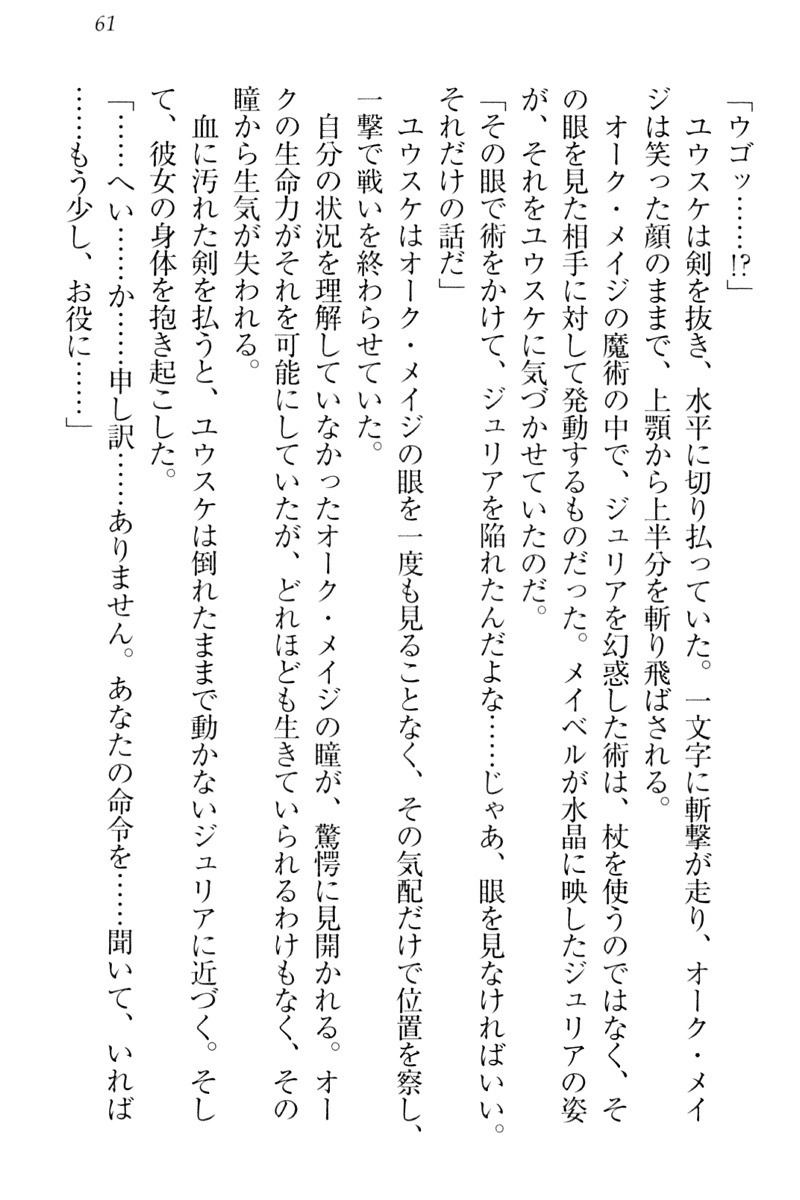 61
「ウゴッ……!?」
　ユウスケは剣を抜き、水平に切り払っていた。一文字に斬撃が走り、オーク・メイ
ジは笑った顔のままで、上顎から上半分を斬り飛ばされる。
　オーク・メイジの魔術の中で、ジュリアを幻惑した術は、杖を使うのではなく、そ
の眼を見た相手に対して発動するものだった。メイベルが水晶に映したジュリアの姿
が、それをユウスケに気づかせていたのだ。
「その眼で術をかけて、ジュリアを陥れたんだよな……じゃあ、眼を見なければいい。
それだけの話だ」
　ユウスケはオーク・メイジの眼を一度も見ることなく、その気配だけで位置を察し、
一撃で戦いを終わらせていた。
　自分の状況を理解していなかったオーク・メイジの瞳が、驚愕に見開かれる。オー
クの生命力がそれを可能にしていたが、どれほども生きていられるわけもなく、その
瞳から生気が失われる。
　血に汚れた剣を払うと、ユウスケは倒れたままで動かないジュリアに近づく。そし
て、彼女の身体を抱き起こした。
「……へい……か……申し訳……ありません。あなたの命令を……聞いて、いれば
……もう少し、お役に……」